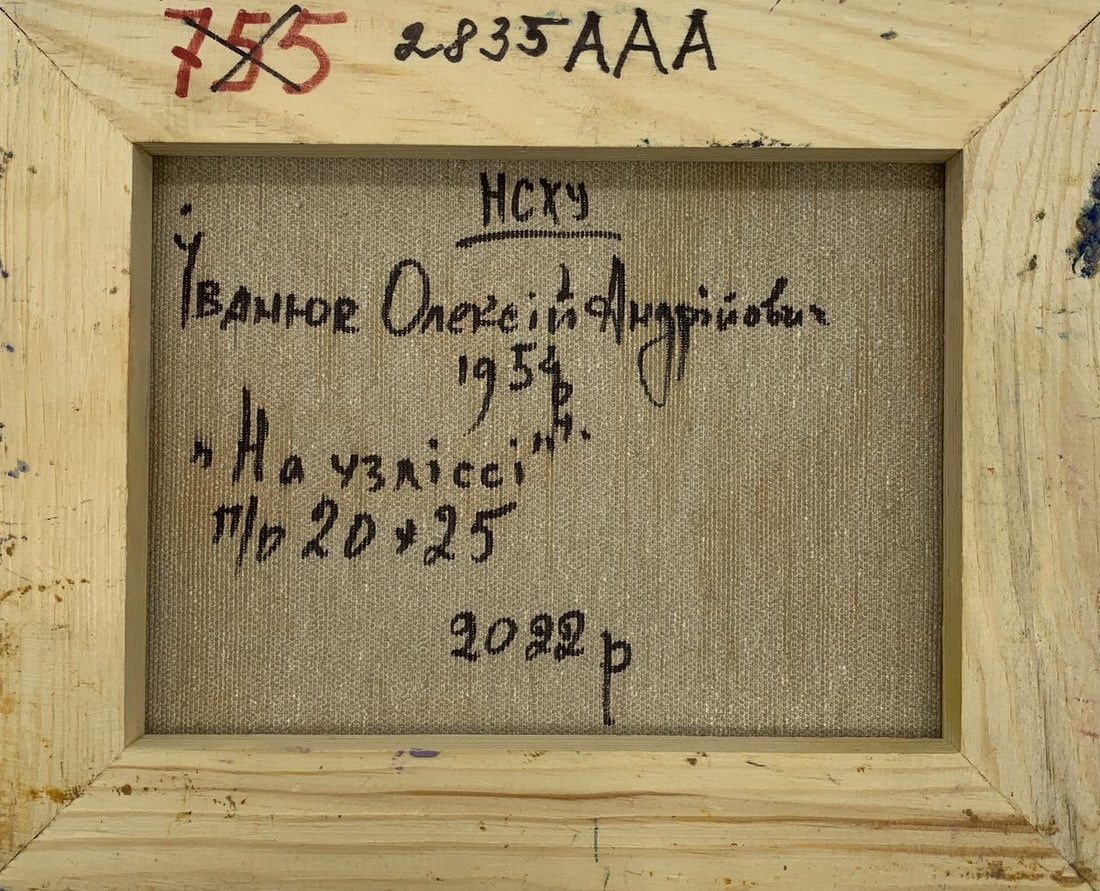 755 2835 ААА
НСХУ
Іванюк Олексій Андрійович
1954 р.н.
"На узліссі"
п/о 20*25
2022 р